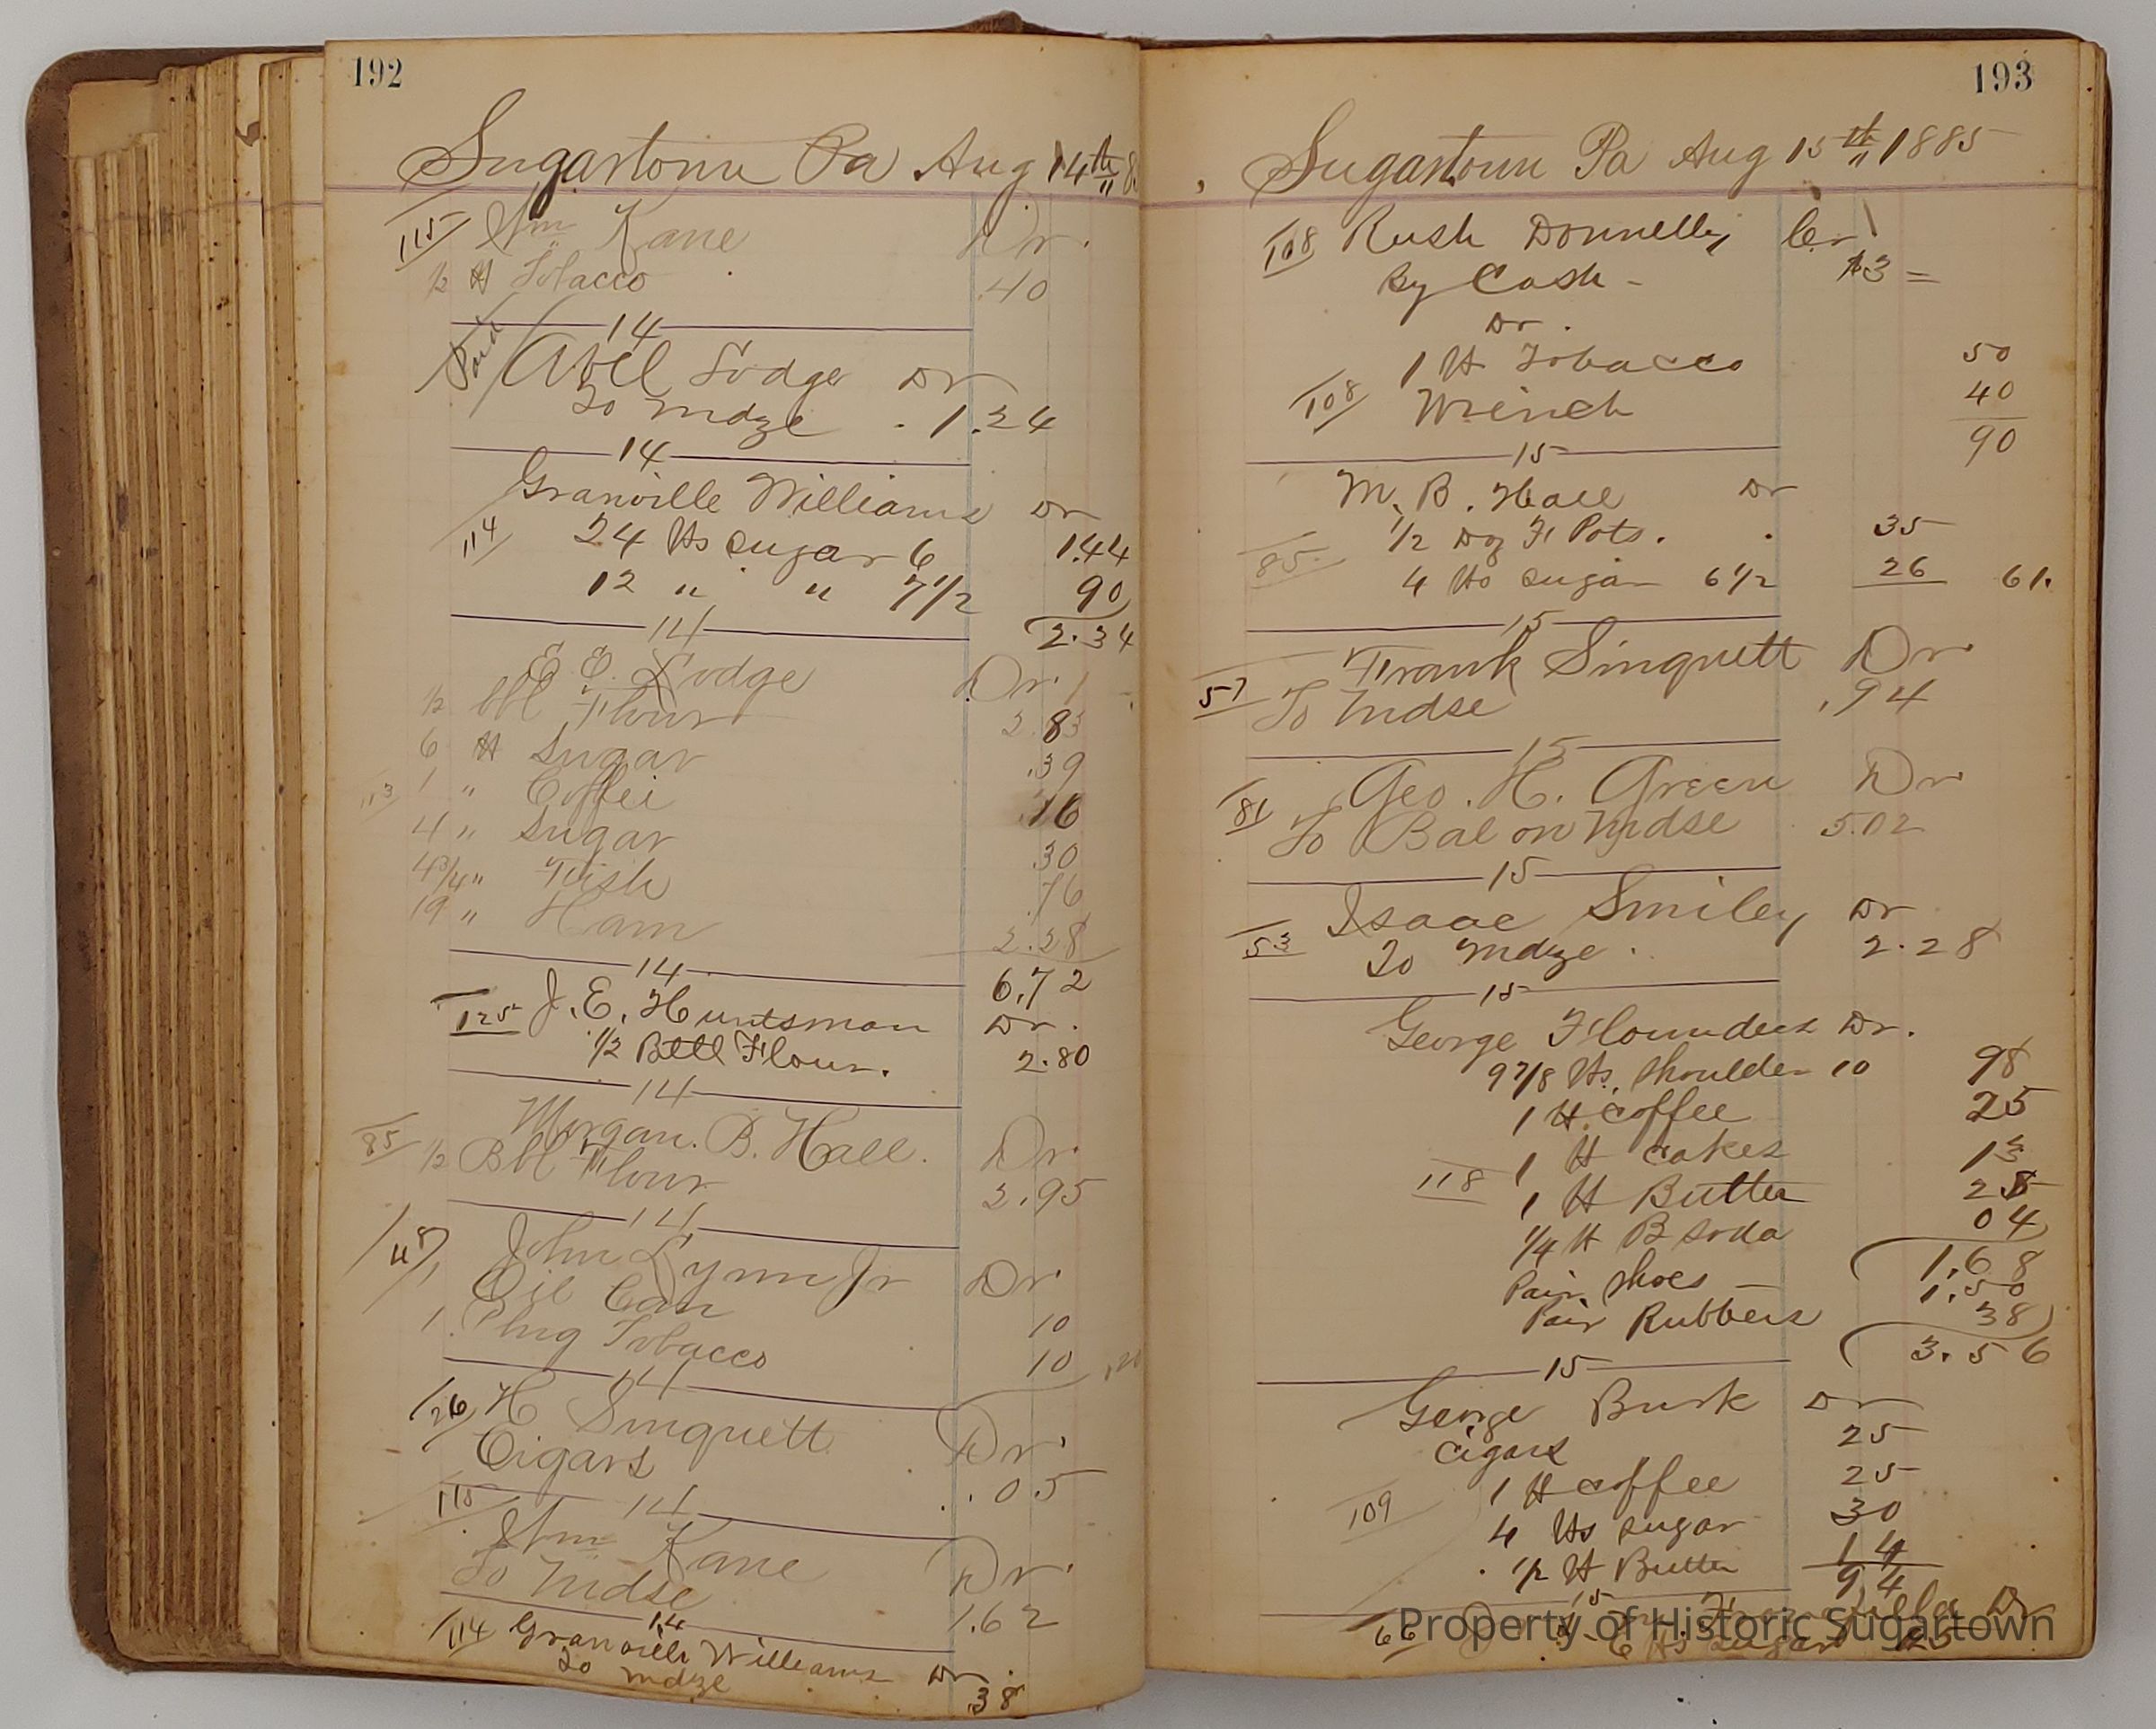 192
Sugartown Pa Aug 14th 8
115 Wm Kane Dr.
1/2 ℔ Tobacco .40
14
Paid Abel Lodge Dr
To Mdze . 1.24
14
Granville Williams Dr
114 24 ℔s Sugar 6 1.44
12 " " 7 1/2 90
2.34
14
E. E. Lodge Dr.
1/2 bbl Flour 2.83
6 ℔ Sugar .39
113 1 " Coffei .16
4 " Sugar .30
4 3/4 " Fish .76
19 " Ham 2.28
6.72
14
125 J. E. Huntsman Dr.
1/2 Bbll Flour. 2.80
14
Morgan. B. Hall. Dr
85 1/2 Bbl Flour 2.95
14
John Lynn Jr Dr
1 Oil Can 10
1. Plug Tobacco 10 .20
14
126 H Sinquett Dr.
Cigars .05
14
115 Wm Kane Dr.
To Mdse 1.62
14
114 Granville Williams Dr.
To Mdze 38
193
Sugartown Pa Aug 15th 1885
108 Rush Donnelly Cr
By Cash - $3 =
Dr.
1 ℔ Tobacco 50
108 Wrench 40
90
15
M. B. Hall Dr
1/2 Doz Fl Pots. 35
85. 4 ℔s Sugar 6 1/2 26 61.
15
Frank Sinquett Dr
57 To Mdse .94
15
Geo. H. Green Dr
81 To Bal on Mdse 5.02
15
Isaac Smiley Dr
53 To Mdze. 2.28
15
George Flounders Dr.
9 7/8 ℔s. Shoulder 10 98
1 ℔ Coffee 25
1 ℔ Cakes 13
118 1 ℔ Butter 28
1/4 ℔ B Soda 04
1.68
Pair Shoes — 1.50
Pair Rubbers 38
3.56
15
George Burk Dr
Cigars 25
1 ℔ Coffee 25
109 4 ℔s Sugar 30
1/2 ℔ Butter 14
94
15
66 Dr
Sugar
Property of Historic Sugartown